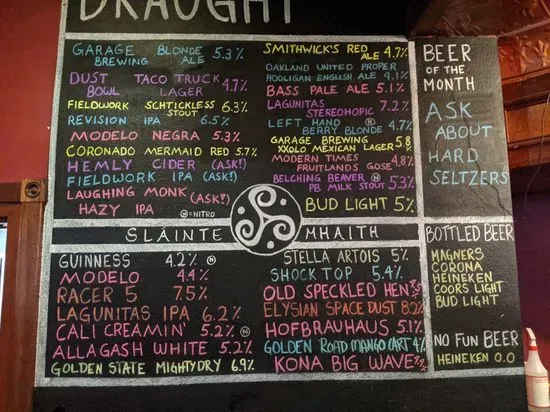 DRAUGHT
GARAGE BLONDE
BREWING ALE 5.3%
DUST TACO TRUCK
BOWL LAGER 4.7%
FIELDWORK SCHTICKLESS 6.3%
STOUT
REVISION IPA 6.5%
MODELO NEGRA 5.3%
CORONADO MERMAID RED 5.7%
HEMLY CIDER (ASK!)
FIELDWORK IPA (ASK!)
LAUGHING MONK (ASK!)
HAZY IPA
N=NITRO
SMITHWICK'S RED
ALE 4.7%
OAKLAND UNITED PROPER
HOOLIGAN ENGLISH ALE 4.1%
BASS PALE ALE 5.1%
LAGUNITAS 7.2%
STEREOHOPIC
LEFT HAND N
BERRY BLONDE 4.7%
GARAGE BREWING 5.8
XXOLO MEXICAN LAGER
MODERN TIMES 4.8%
FRUITLANDS GOSE
BELCHING BEAVER N
PB MILK STOUT 5.3%
BUD LIGHT 5%
SLÁINTE MHAITH
GUINNESS 4.2% N
MODELO 4.4%
RACER 5 7.5%
LAGUNITAS IPA 6.2%
CALI CREAMIN' 5.2% N
ALLAGASH WHITE 5.2%
GOLDEN STATE MIGHTY DRY 6.9%
STELLA ARTOIS 5%
SHOCK TOP 5.4%
OLD SPECKLED HEN
ELYSIAN SPACE DUST 8.2%
HOFBRAUHAUS 5.1%
GOLDEN ROAD MANGO CART 4%
KONA BIG WAVE
BEER
OF THE
MONTH
ASK
ABOUT
HARD
SELTZERS
BOTTLED BEER
MAGNERS
CORONA
HEINEKEN
COORS LIGHT
BUD LIGHT
NO FUN BEER
HEINEKEN 0.0